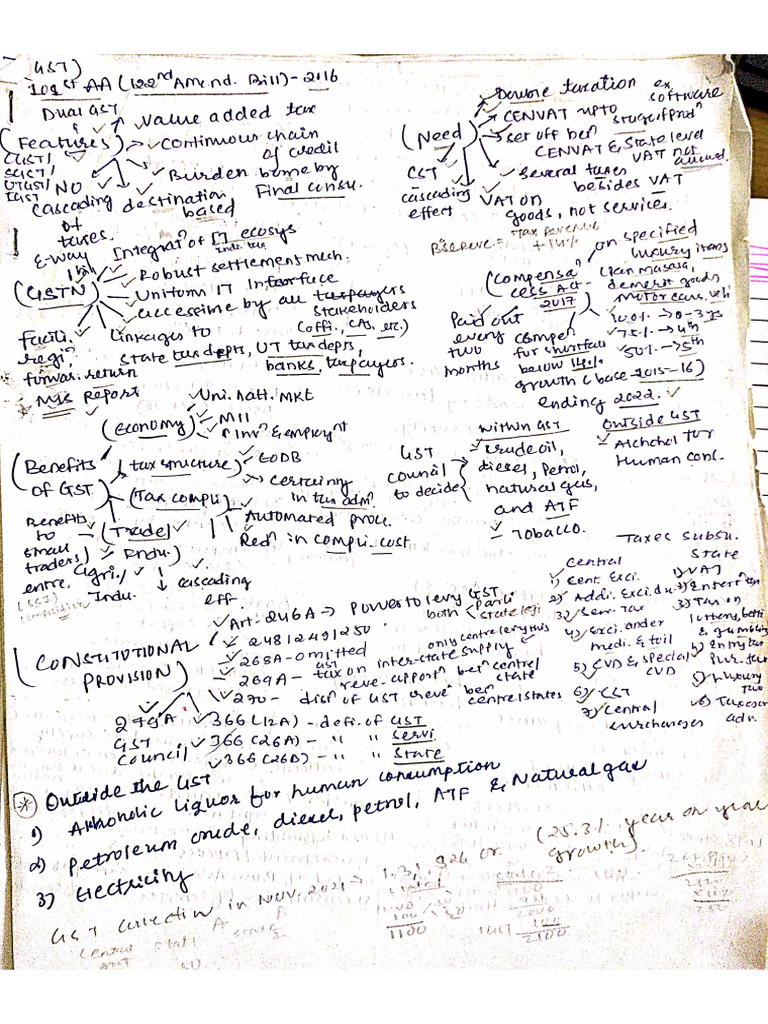 GST)
101st AA (122nd Amend. Bill) - 2016
Dual GST
Value added tax
(Features)
Continuous chain of credit
CGST/
SGST/
UTGST/
IGST
Burden borne by Final consu.
NO Cascading of taxes.
destination based
(Need)
Double taxation
ex software
CENVAT upto stage of prodn
set off betn CENVAT & State level VAT not allowed.
Several taxes besides VAT
CST
cascading effect
VAT on goods, not services.
tax revenue
E-way bill
Integratn of IT ecosys
(GSTN)
Robust settlement mech.
Uniform IT Interface
accessible by all taxpayers stakeholders
(offi., CAs, etc.)
Facili. regin
forwar. return
MIS report
Linkages to State tax depts, UT tax depts, banks, taxpayers.
(Compensan cess Act - 2017)
on specified luxury items
(Pan masala, demerit goods
motorcars, veh)
Paid out every two months
100% → 0-3 ys
75% → 4th
50% → 5th
compen for shortfall below 14%
growth (base 2015-16)
ending 2022.
(Benefits of GST)
(Economy)
Uni. natl. MKt
MII
Inv & employnt
(tax structure)
EODB
Certainty in tax admn
(Tax compli)
Automated proce.
Redn in compli. cost
(Trade)
Benefits to small traders/ entre.
Agri./ Indu.
cascading eff.
GST council to decide
Within GST
Crude oil, diesel, Petrol, natural gas, and ATF
Tobacco.
Outside GST
Alchohol for Human Cons.
(CONSTITUTIONAL PROVISION)
Art. 246A → Power to levy GST
both Parli
state legi
248, 249, 250
only centre levy this
268A - omitted
269A - GST tax on inter-state supply
reve. apportn betn centre/state
270 - disn of GST reve betn centre/states
279A
GST Council
366(12A) - defi. of GST
366(26A) - " " Servi
366(26B) - " " State
Taxes Subsu.
Central
1) Cent. Exci.
2) Addi. Exci. du.
3) Ser. Tax
4) Exci. under medi. & toil
5) CVD & Special CVD
6) CST
7) Central surcharges
State
1) VAT
3) Tax on lottery, betti & gambling
5) Luxury Tax
6) Taxes on adv.
* Outside the GST
1) Alchoholic Liquor for human consumption
2) Petroleum crude, diesel, petrol, ATF & Natural gas
3) Electricity
GST Collection in NOV, 2021 → 1,31,526 cr (25.3% year on year growth).
1100
2100